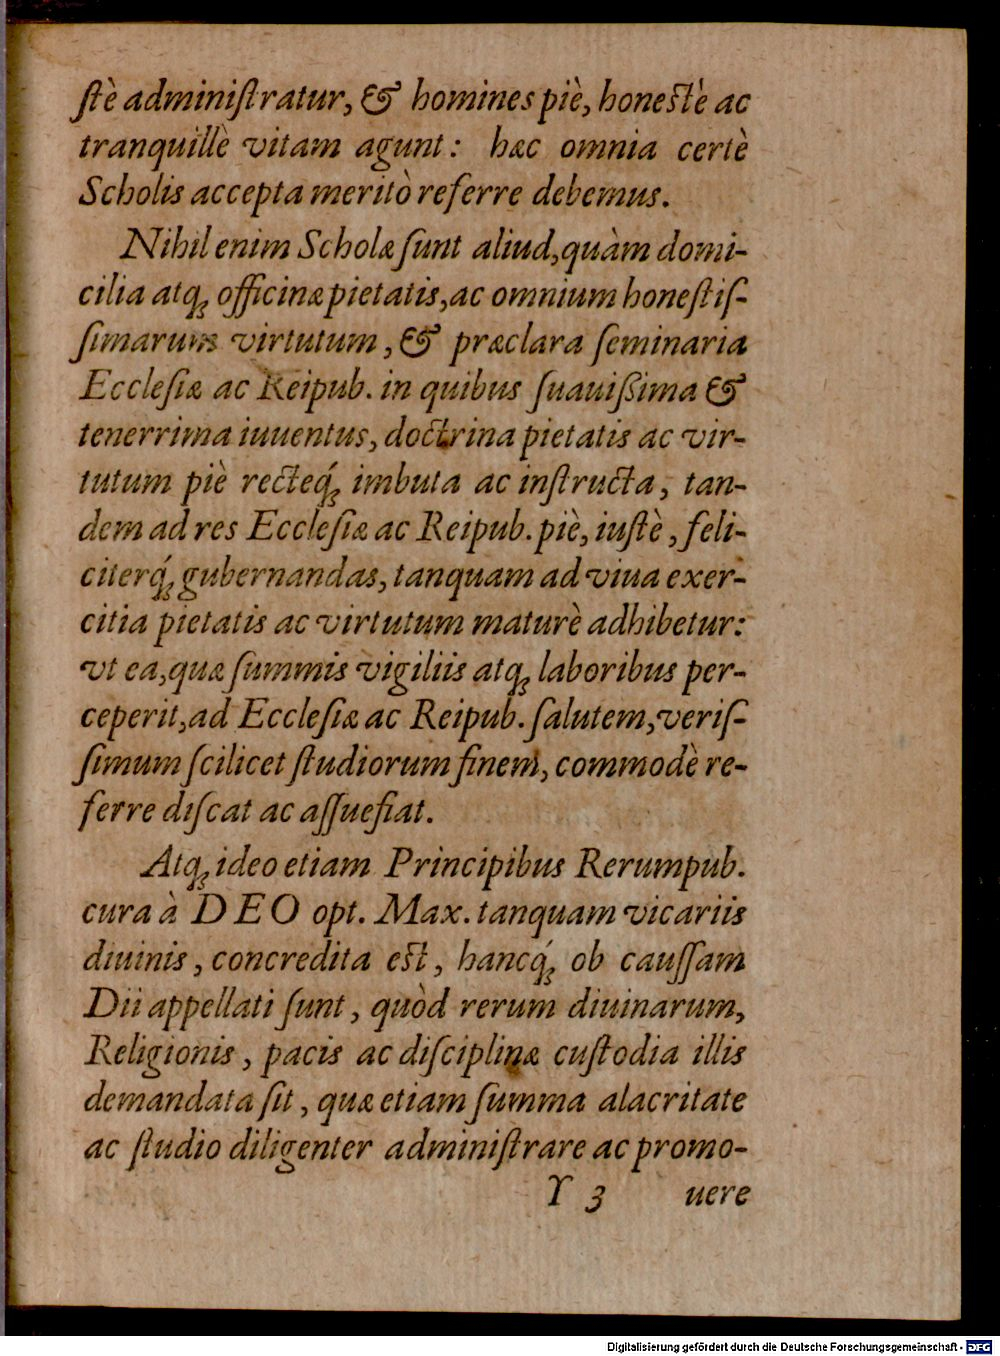 ſtè adminiſtratur, & homines piè, honeſtè ac
tranquillè vitam agunt: hæc omnia certè
Scholis accepta meritò referre debemus.
Nihil enim Scholæ ſunt aliud, quàm domi-
cilia atq; officinæ pietatis, ac omnium honeſtiſ-
ſimarum virtutum, & præclara ſeminaria
Eccleſiæ ac Reipub. in quibus ſuauißima &
tenerrima iuuentus, doctrina pietatis ac vir-
tutum piè recteq́; imbuta ac inſtructa, tan-
dem ad res Eccleſiæ ac Reipub. piè, iuſtè, feli-
citerq́; gubernandas, tanquam ad viua exer-
citia pietatis ac virtutum maturè adhibetur:
vt ea, quæ ſummis vigiliis atq; laboribus per-
ceperit, ad Eccleſiæ ac Reipub. ſalutem, veriſ-
ſimum ſcilicet ſtudiorum finem, commodè re-
ferre diſcat ac aſſuefiat.
Atq; ideo etiam Principibus Rerumpub.
cura à DEO opt. Max. tanquam vicariis
diuinis, concredita eſt, hancq́; ob cauſſam
Dii appellati ſunt, quòd rerum diuinarum,
Religionis, pacis ac diſciplinæ cuſtodia illis
demandata ſit, quæ etiam ſumma alacritate
ac ſtudio diligenter adminiſtrare ac promo-
Y 3 uere
Digitalisierung gefördert durch die Deutsche Forschungsgemeinschaft - DFG